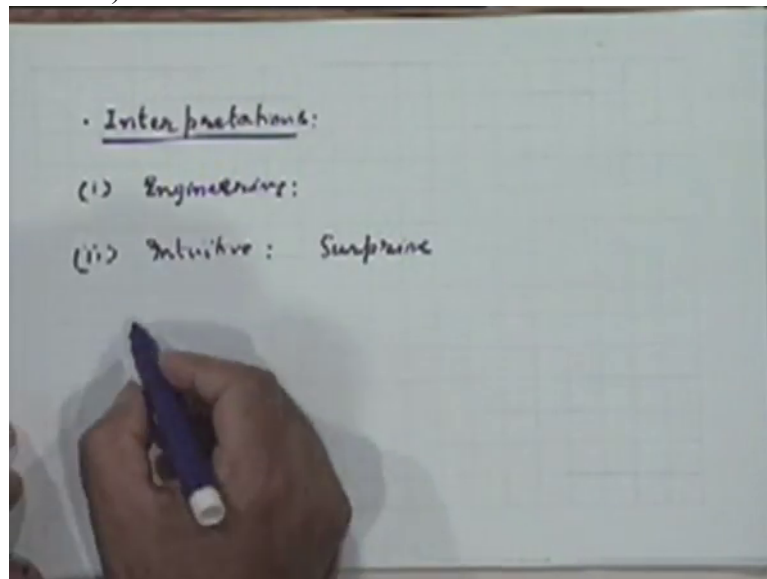 · Interpretations:
(i) Engineering:
(ii) Intuitive: Surprise